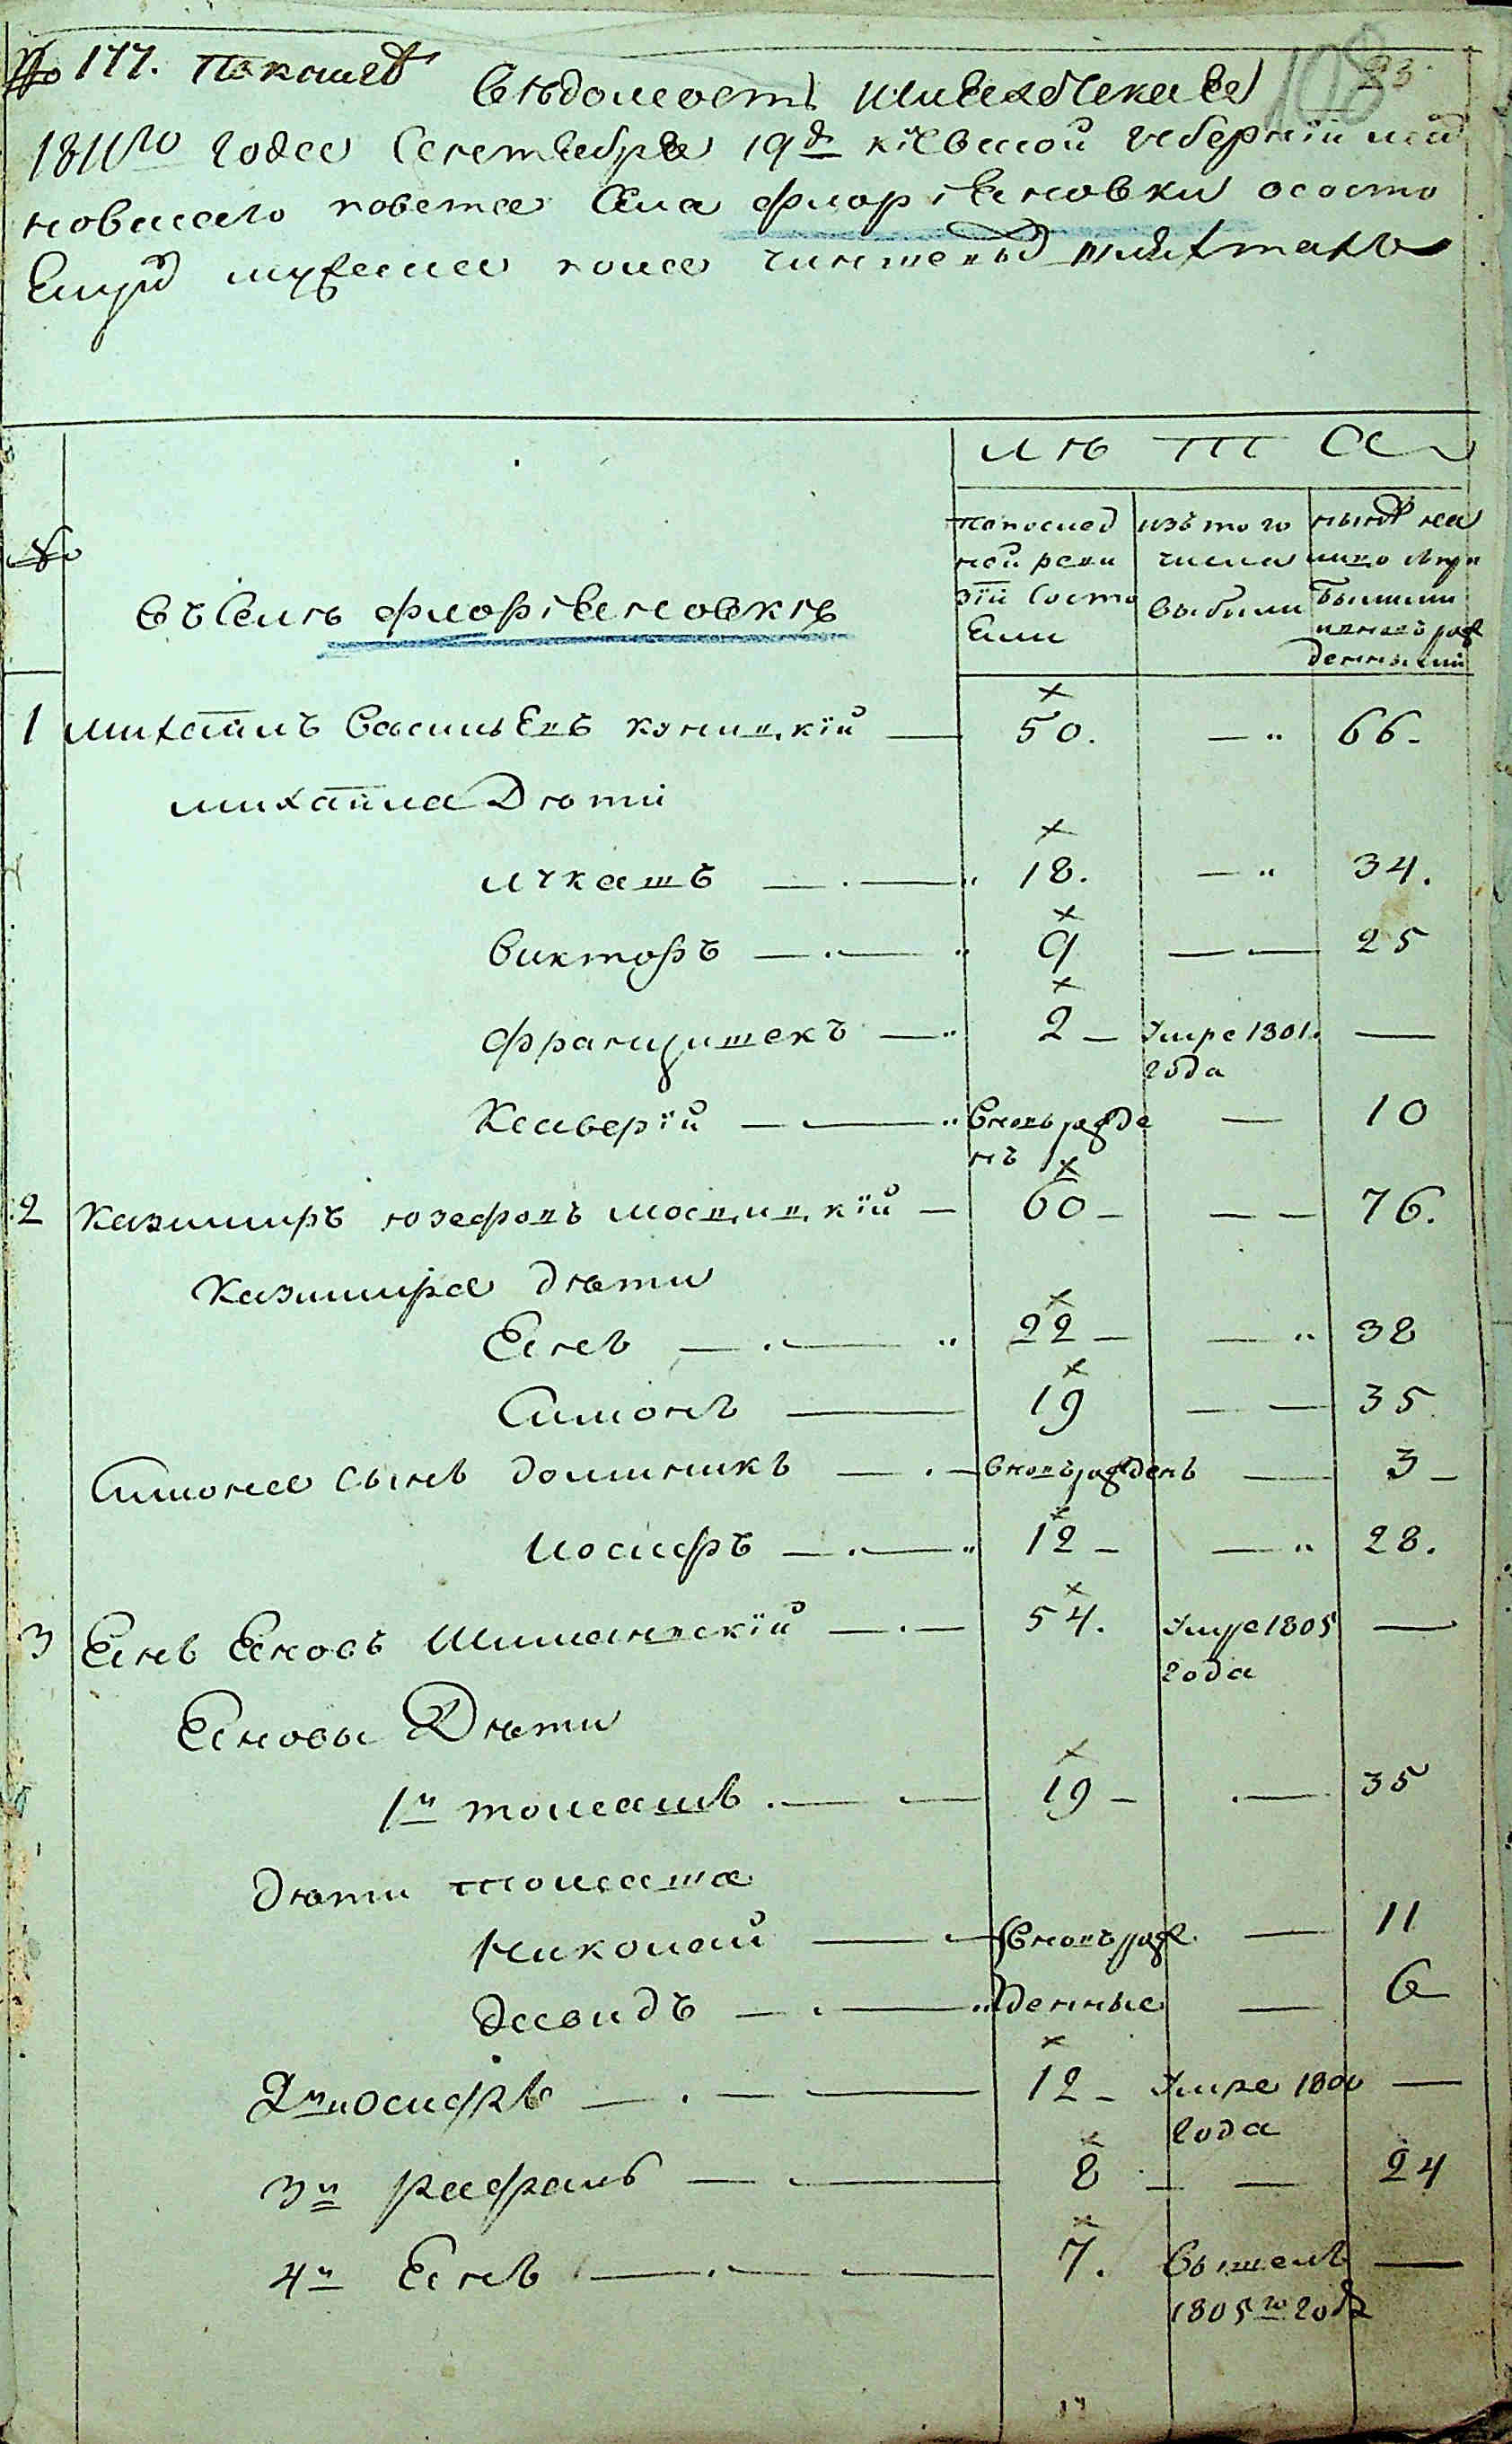 № 177. 108 23.
Вѣдомость
1811го года Сентебря 19д кіевской губерніи
новскаго повета Села Флоріяновки ососто
ящей мужеска пола чиншевой шляхты
Лѣта
№ Въ Селѣ Флоріяновкѣ
попослед ней реви зіи Состо яли
изъ того числа выбыли
ныне на лицо Съ Бывшими вновь рож денными
1 Михайлъ Васильевъ кониц.кій — 50. — 66.
Михайла Дѣти
Лукашъ — 18. — 34.
Викторъ — 9 — — 25
Францишекъ — 2 — Умре 1801. —
года
Ксаверій — Вновь рожде — 10
нъ
2 Казимиръ Юзефовъ Мосц.иц.кій — 60 — — — 76.
Казимира дѣти
Янъ — 22 — — 38
Симонъ — 19 — — 35
Симона сынъ доминикъ — вновь рожденъ — 3 —
Иосифъ — 12 — — 28.
3 Янъ Яновъ Шиманвскій — 54. Умре 1805 —
года
Яновы Дѣти
1й томашъ — — 19 — — 35
дѣти томаша
Николай — Вновь рож — 11
Давидъ — денные — 6
2й иосифъ — — 12 — Умре 1800 —
года
3й рафалъ — — 8 — — 24
4й Янъ — — 7. Вышелъ —
1805го года